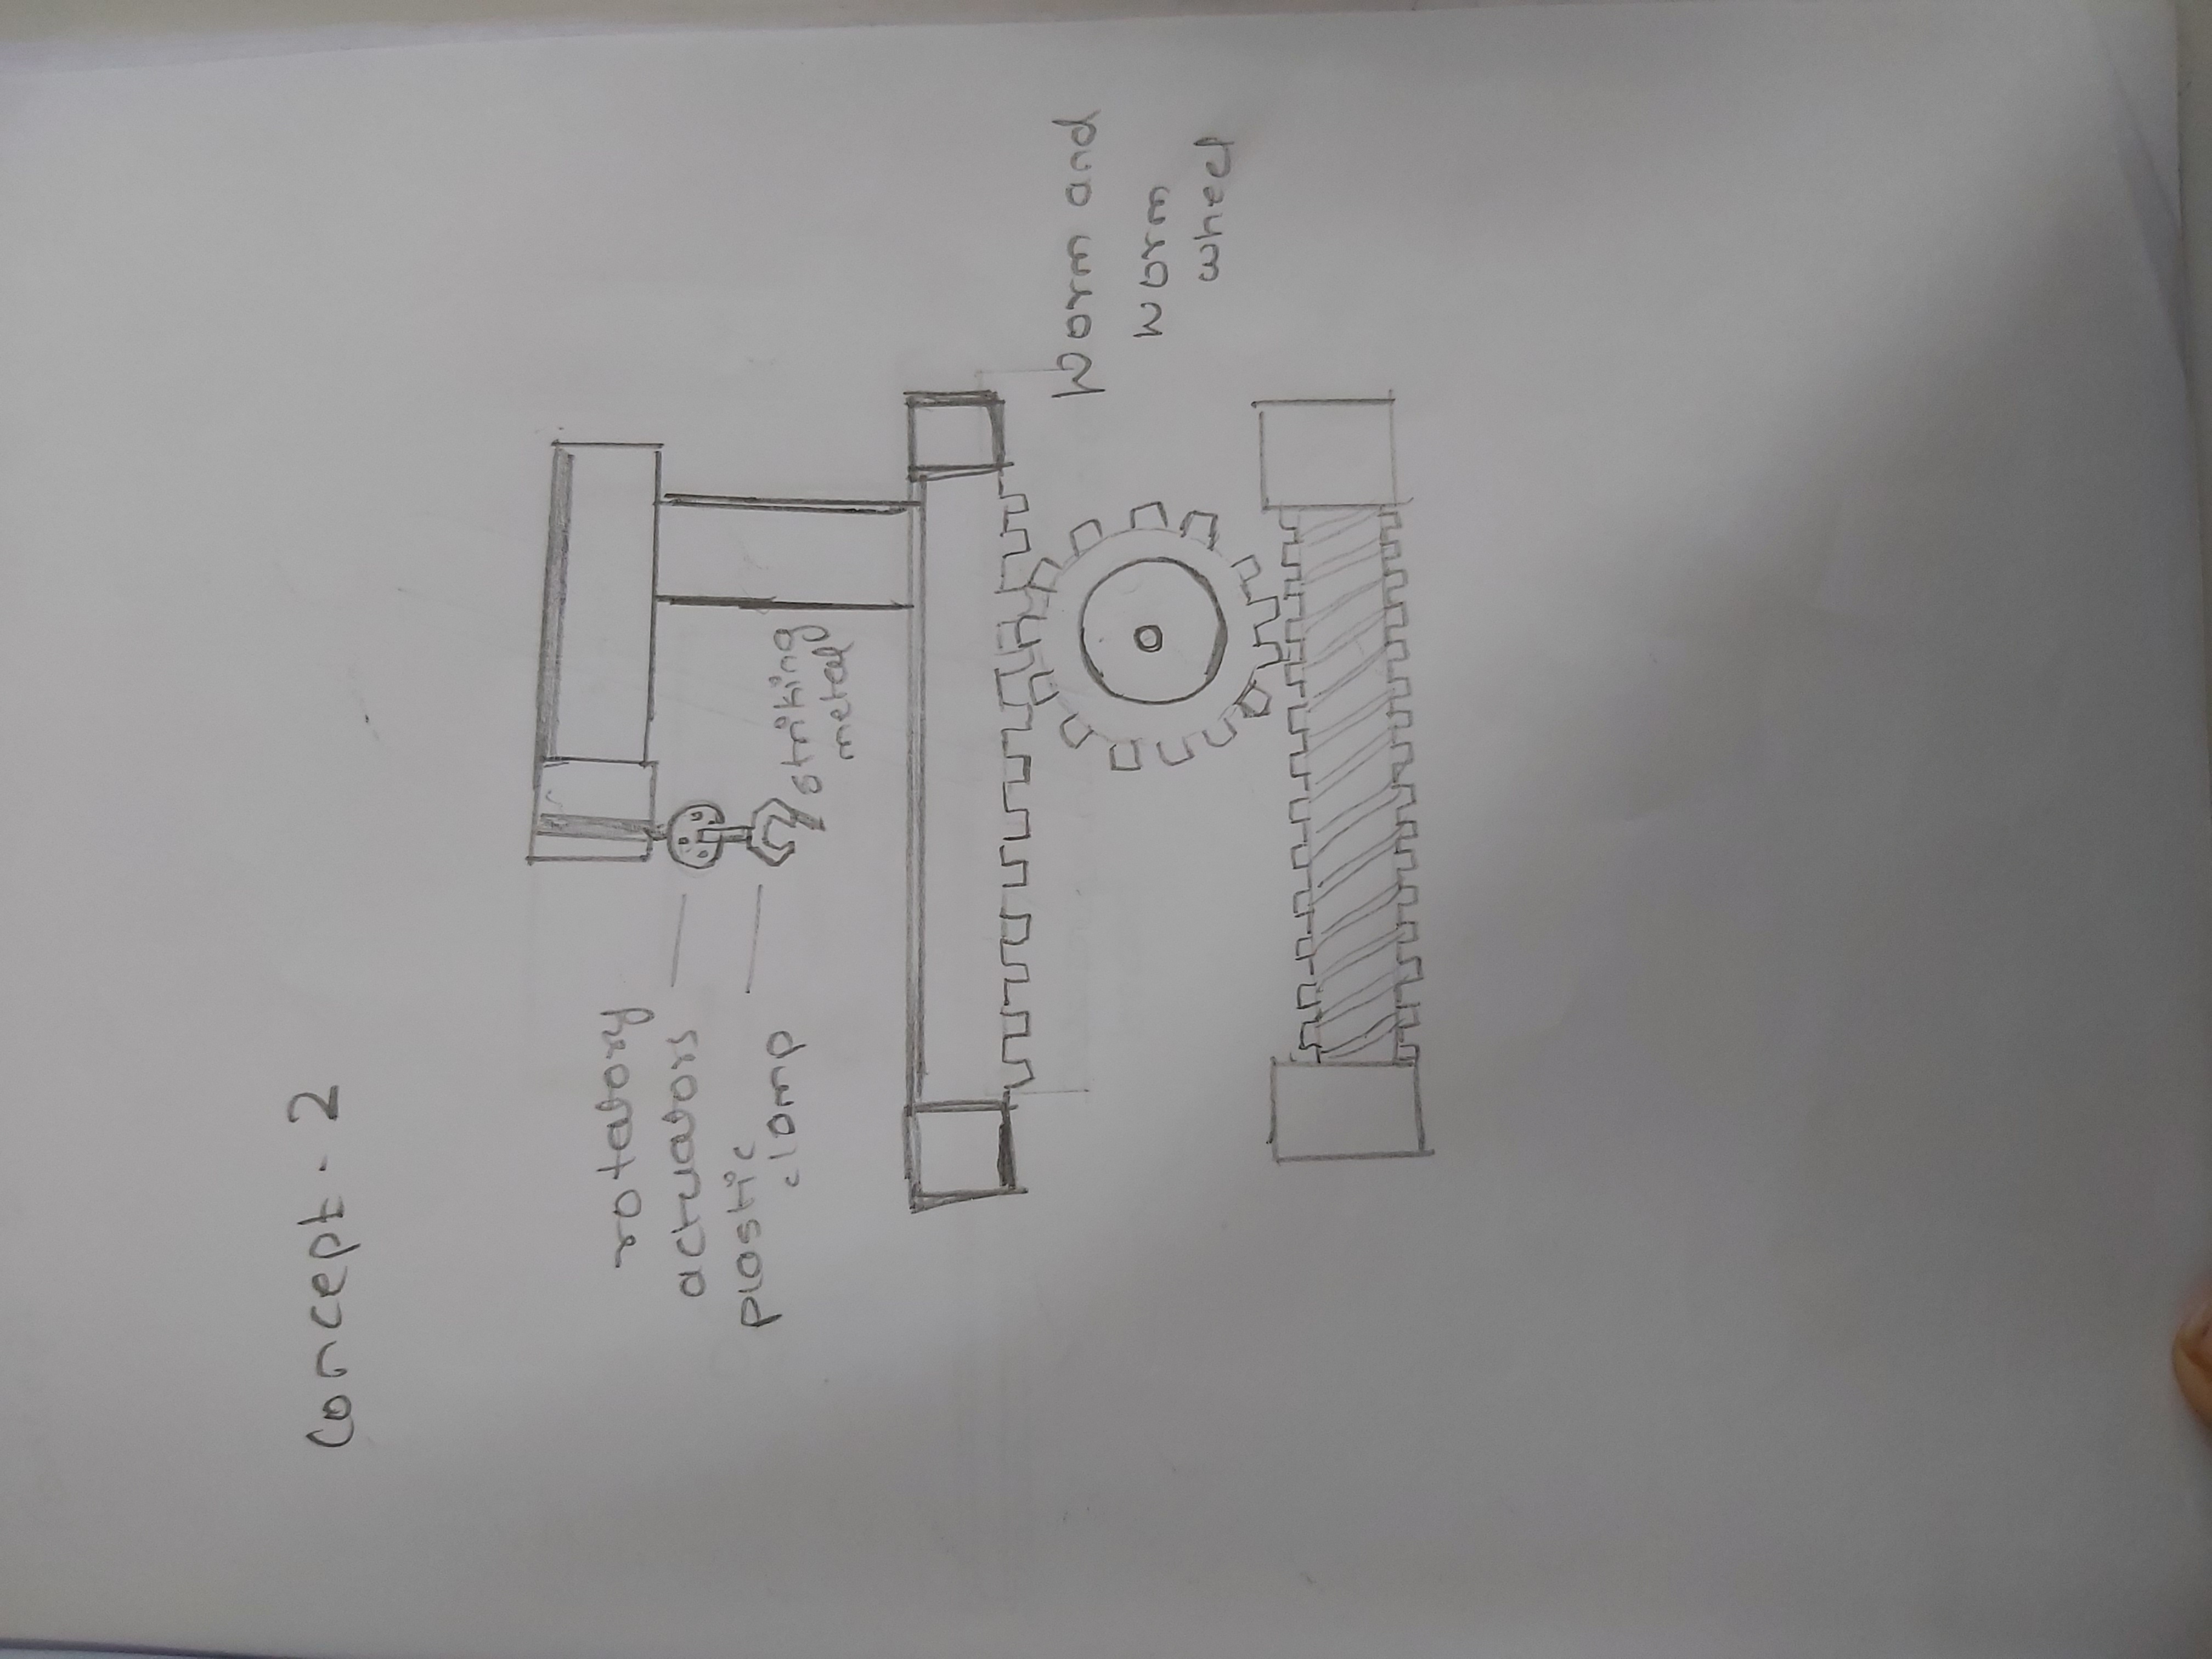 Concept - 2
rotatory
actuators
plastic
clamp
striking
metal
Worm and
worm
wheel